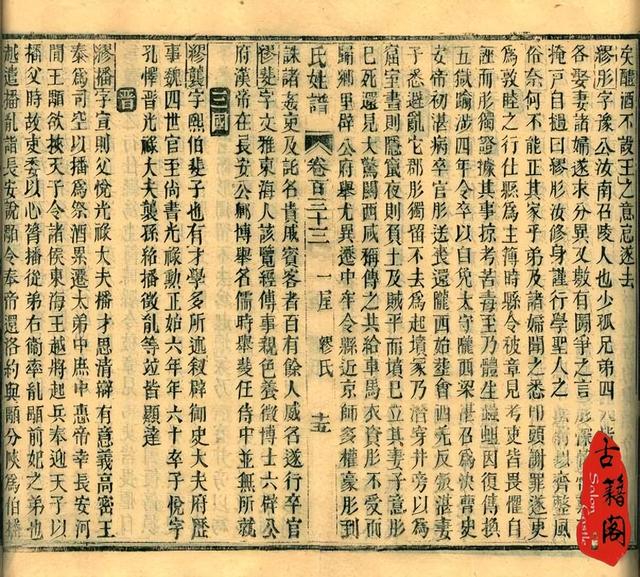 矣醴酒不設王之意怠遂去
繆彤字豫公汝南召陵人也少孤兄弟四人皆
各娶妻諸婦遂求分異又數有鬬爭之言彤
掩戸自撾曰繆彤汝修身謹行學聖人之 以齊整風
俗奈何不能正其家乎弟及諸婦聞之悉叩頭謝罪遂更
爲敦睦之行仕縣爲主簿時縣令被章見考吏皆畏懼自
誣而彤獨證據其事掠考苦毒至乃體生蟲蛆因復傳換
五獄踰涉四年令卒以自免太守隴西梁湛召爲決曹史
安帝初湛病卒官彤送喪還隴西始葬會西羌反叛湛妻
子悉避亂它郡彤獨留不去爲起墳冢乃潛穿井旁以爲
窟室晝則隱竄夜則負土及賊平而墳已立其妻子意彤
已死還見大驚關西咸稱傳之共給車馬衣資彤不受而
歸鄉里辟公府舉尤異遷中牟令縣近京師多權豪彤到
氏姓譜 卷百三十三 一屋 繆氏 十五
誅諸姦吏及託名貴戚賓客者百有餘人威名遂行卒官
繆斐字文雅東海人該覽經傳事親色養徵博士六辟公
府漢帝在長安公卿博舉名儒時舉斐任侍中並無所就
三國
繆襲字熙伯斐子也有才學多所述叙辟御史大夫府歷
事魏四世官至尚書光祿勳正始六年年六十卒子悅字
孔懌晉光祿大夫襲孫紹播徵亂等竝皆顯達
晋
繆播字宣則父悅光祿大夫播才思清辯有意義高密王
泰爲司空以播爲祭酒累遷太弟中庶中惠帝幸長安河
間王顒欲挾天子令諸侯東海王越將起兵奉迎天子以
播父時故吏委以心膂播從弟右衛率亂顒前妃之弟也
越遣播亂詣長安說顒令奉帝還洛約與顒分陝爲伯播
古籍閣